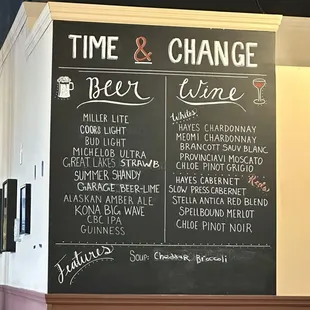 TIME & CHANGE
Beer
MILLER LITE
COORS LIGHT
BUD LIGHT
MICHELOB ULTRA
GREAT LAKES STRAWB.
SUMMER SHANDY
GARAGE BEER-LIME
ALASKAN AMBER ALE
KONA BIG WAVE
CBC IPA
GUINNESS
Wine
Whites
HAYES CHARDONNAY
MEOMI CHARDONNAY
BRANCOTT SAUV BLANC
PROVINCIAVI MOSCATO
CHLOE PINOT GRIGIO
Reds
HAYES CABERNET
SLOW PRESS CABERNET
STELLA ANTICA RED BLEND
SPELLBOUND MERLOT
CHLOE PINOT NOIR
Features
SOUP: Cheddar Broccoli